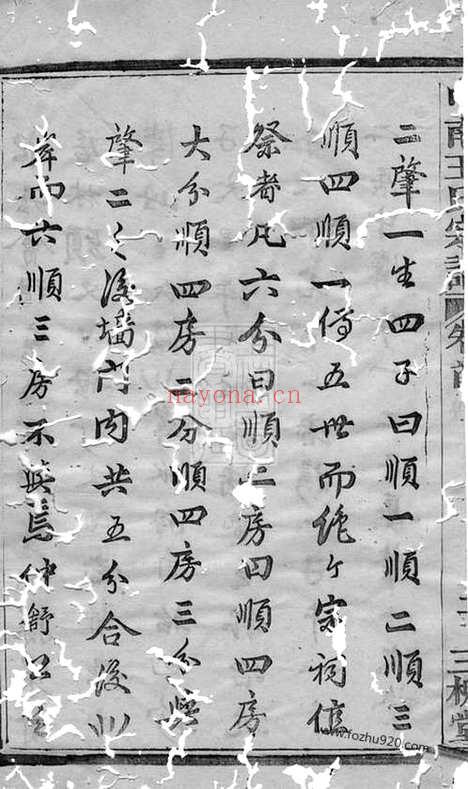 南王氏宗譜 卷首
三槐堂
二肇一生四子曰順一順二順三
順四順一傳五世而絶今宗祠值
祭者凡六分曰順二房曰順四房
大分順四房二分順四房三分
肇二之後墻門內共五分合後
六順三房不與焉仲舒公
nayona.cn
www.fozhu920.com